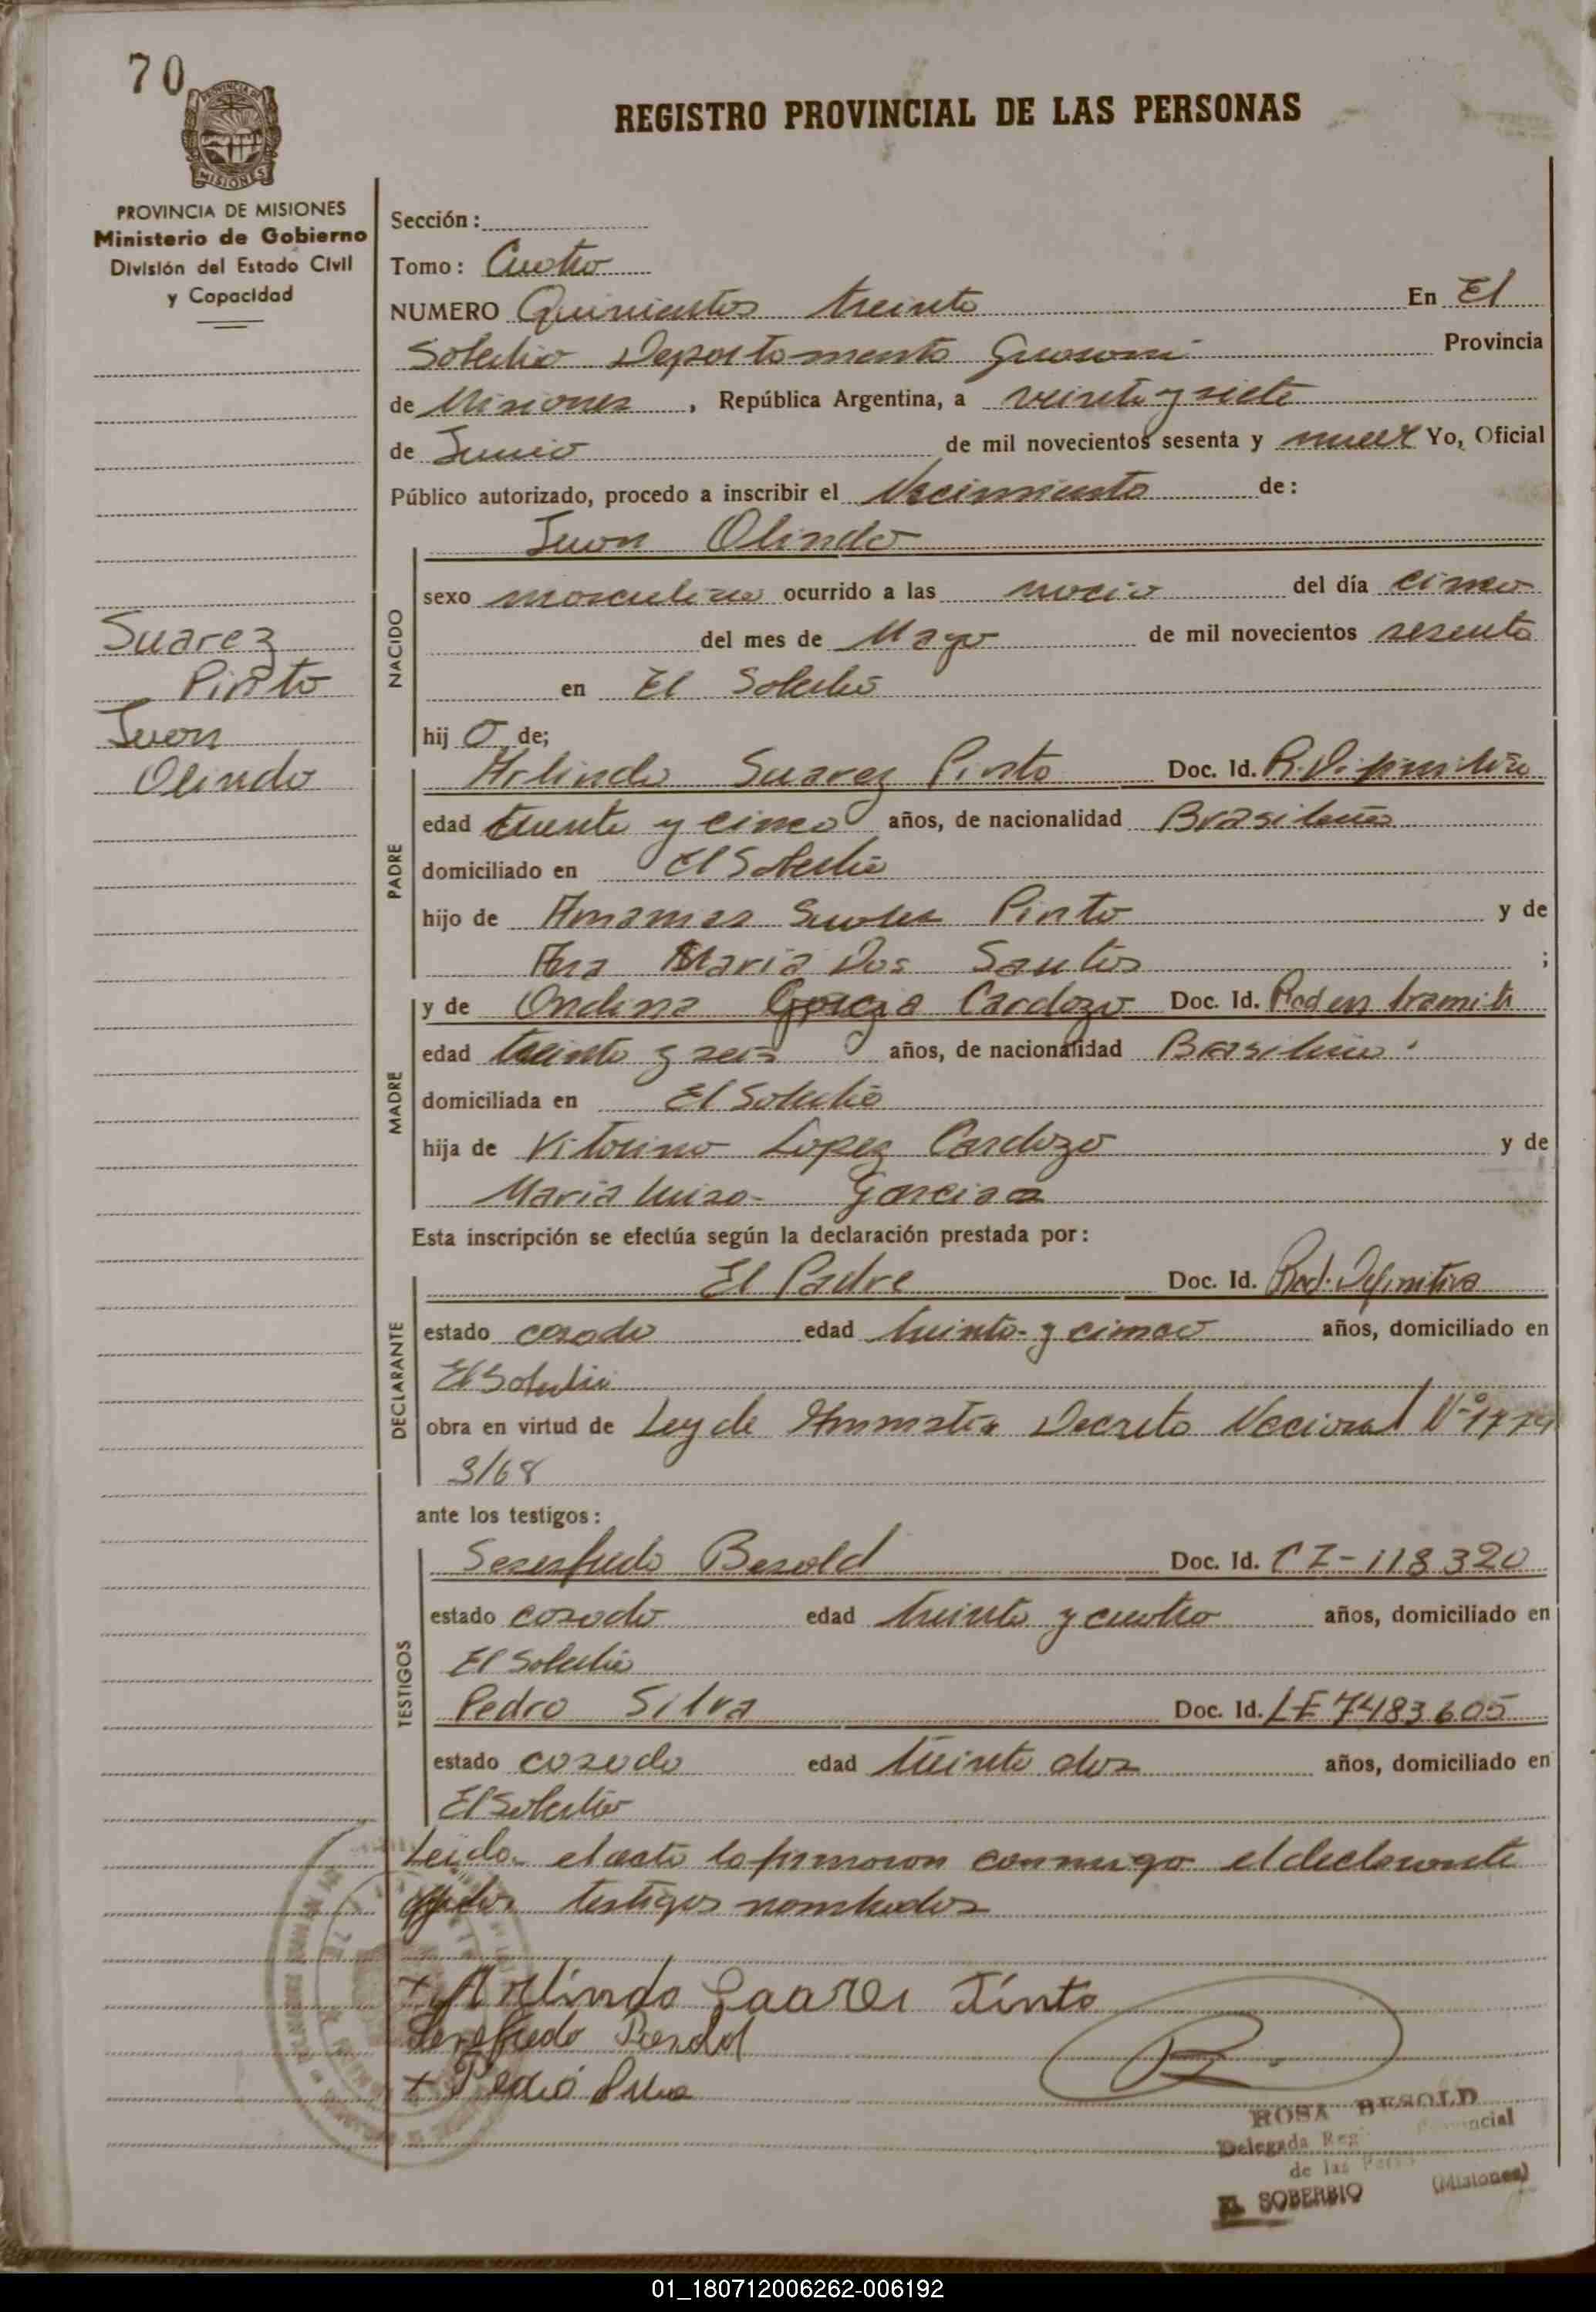 70
MISIONES
REGISTRO PROVINCIAL DE LAS PERSONAS
PROVINCIA DE MISIONES
Ministerio de Gobierno
División del Estado Civil
y Capacidad
Sección:
Tomo: Cuatro
NUMERO Quinientos treinta En El
Soberbio Departamento Guarani Provincia
de Misiones, República Argentina, a veinte y siete
de Junio de mil novecientos sesenta y nueve Yo, Oficial
Público autorizado, procedo a inscribir el Nacimiento de:
Juan Olindo
NACIDO
sexo masculino ocurrido a las del día cinco
del mes de Mayo de mil novecientos sesenta
en El Soberbio
hij o de;
Suarez
Pinto
Juan
Olindo
PADRE
Arlindo Suarez Pinto Doc. Id.
edad treinta y cinco años, de nacionalidad Brasileña
domiciliado en El Soberbio
hijo de Pinto y de
Ana Maria Dos Santos ;
MADRE
y de Ondina Garcia Cardozo Doc. Id. Rad en tramite
edad treinta y seis años, de nacionalidad Brasileña
domiciliada en El Soberbio
hija de Vitorino Lopez Cardozo y de
Maria Luisa Garcia
Esta inscripción se efectúa según la declaración prestada por:
DECLARANTE
El Padre Doc. Id. Rad. Definitiva
estado casado edad treinta y cinco años, domiciliado en
El Soberbio
obra en virtud de Ley de Amnistia Decreto Nacional Nº
3/68
ante los testigos:
TESTIGOS
Besold Doc. Id. CI-118320
estado casado edad treinta y cuatro años, domiciliado en
El Soberbio
Pedro Silva Doc. Id. LE 7483.605
estado casado edad treinta dos años, domiciliado en
El Soberbio
Leida el acta la firmaron conmigo el declarante
testigos nombrados
+ Arlindo Pinto
+ Pedro Silva
ROSA BESOLD
Delegada Reg Provincial
de las Pers
EL SOBERBIO (Misiones)
01_180712006262-006192